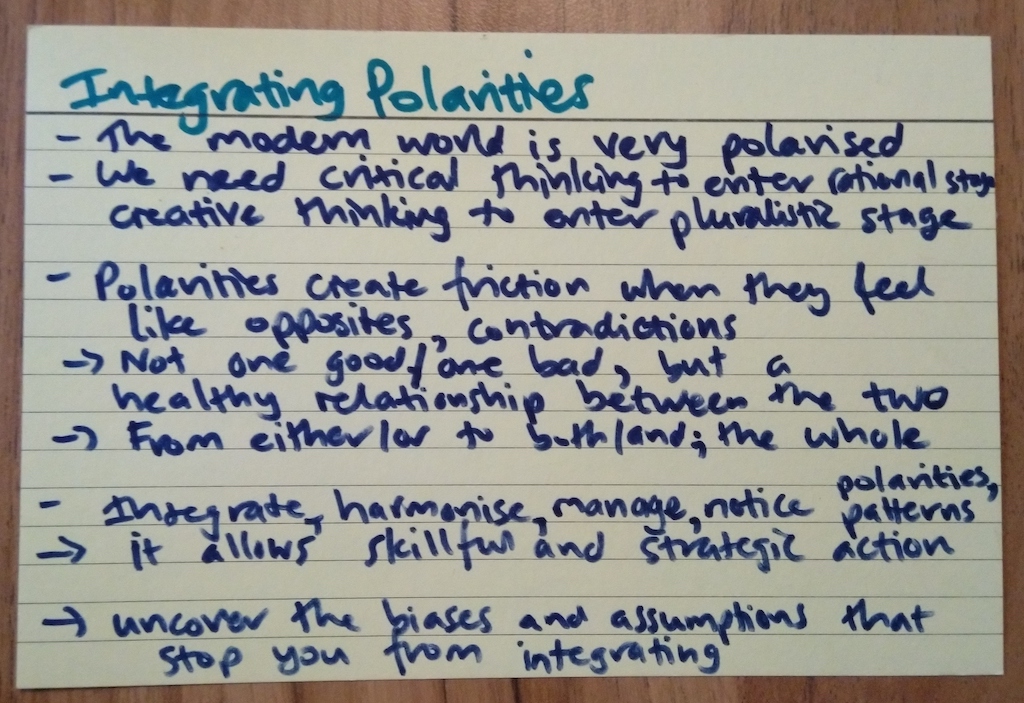 Integrating Polarities
- The modern world is very polarised
- We need critical thinking to enter rational stage
creative thinking to enter pluralistic stage
- Polarities create friction when they feel
like opposites, contradictions
→ Not one good/one bad, but a
healthy relationship between the two
→ From either/or to both/and; the whole
- Integrate, harmonise, manage, notice polarities, patterns
→ it allows skillful and strategic action
→ uncover the biases and assumptions that
stop you from integrating